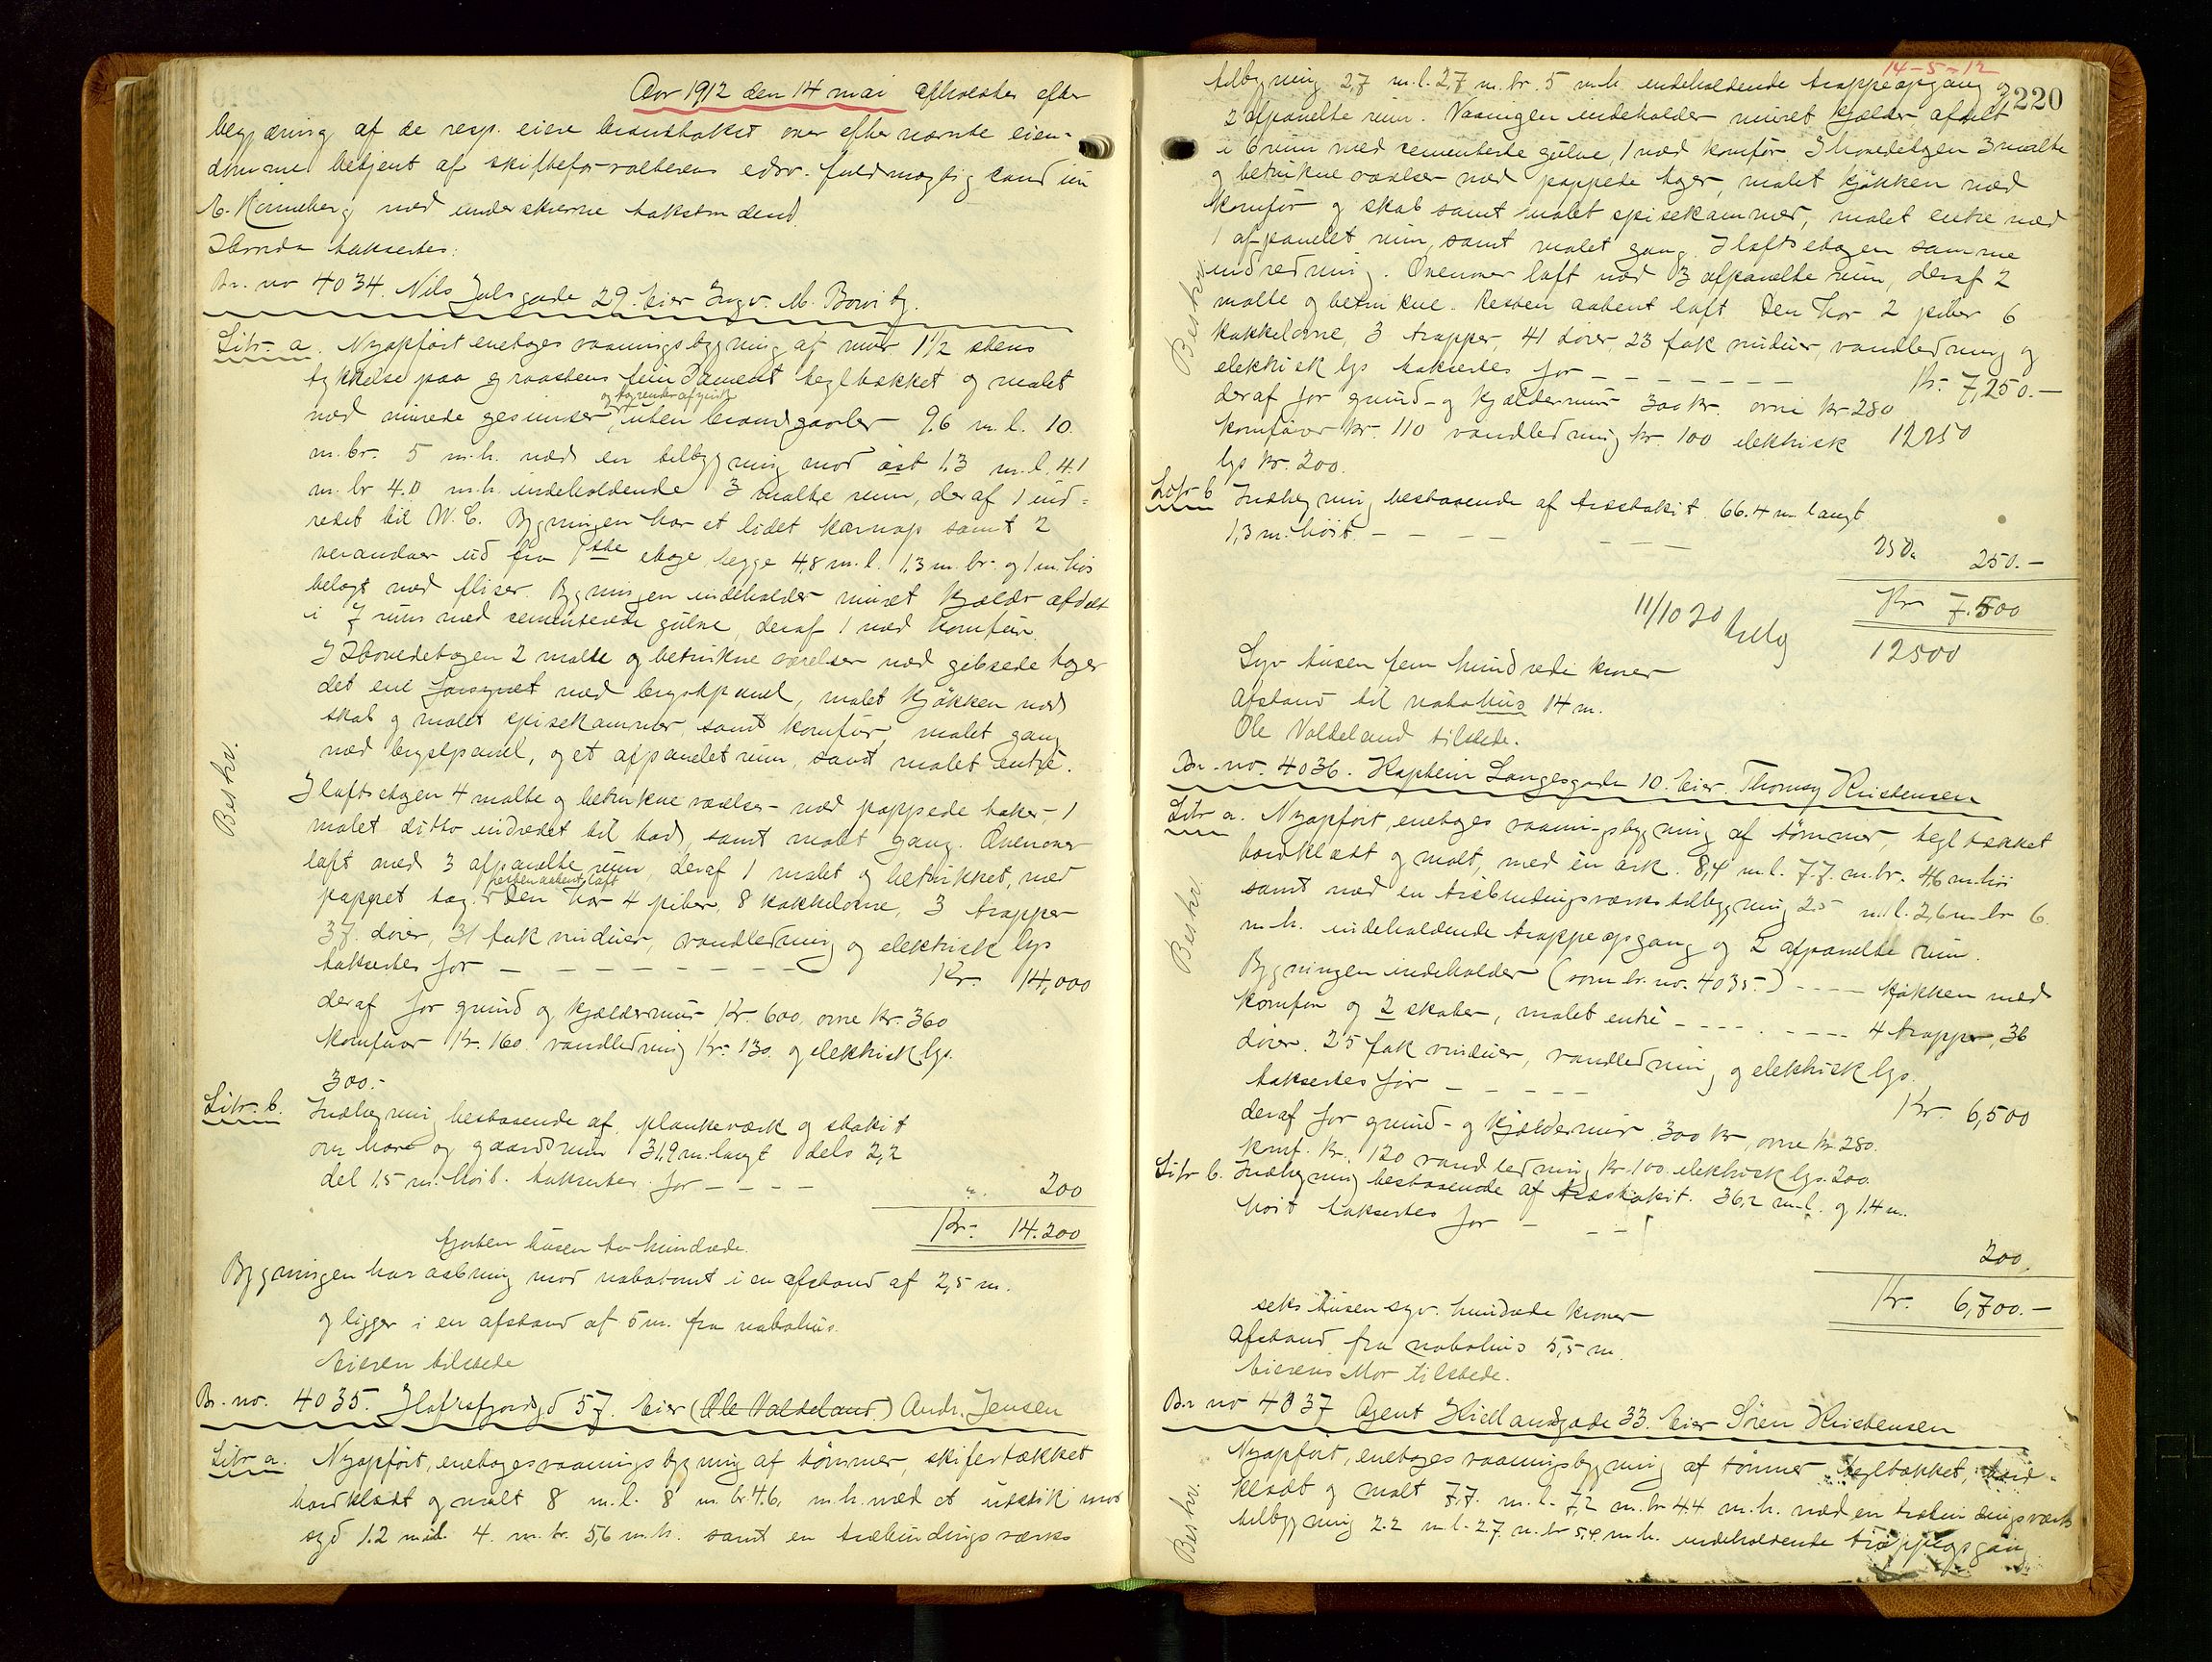 Aar 1912 den 14 mai afholdtes efter
begjæring af de resp. eiere brandtakst over efternævnte eien-
domme betjent af skifteforvalterens edsv. fuldmægtig cand jur
E. Rönneberg med underskrevne takstmænd.
Hvorda taksertes:
Br. no 4034. Nils Julsgade 29. Eier Ingv. M. Bowitz.
Litr. a. Nyopført enetages vaaningsbygning af mur 1½ stens
tykkelse paa graastens fundament tegltækket og malet
og tagrender af zink
med murede gesimser, uten brandgavler 9.6 m. l. 10.
m. br. 5 m. h. med en tilbygning mod øst 1.3 m. l. 4.1
m. br 4.0 m. h. indeholdende 3 malte rum, deraf 1 ind-
redet til W.C. Bygningen har et lidet karnap samt 2
verandaer ud fra 1ste etage, begge 4,8 m. l. 1,3 m. br. og 1 m. høi
belagt med fliser. Bygningen indeholder muret kjælder afdelt
i 7 rum med cementerede gulve, deraf 1 med komfur.
I Hovedetagen 2 malte og betrukne værelser med gibsede tager
det ene forsynet med brystpanel, malet kjøkken med
skab og malet spisekammer, samt komfur, malet gang
med brystpanel, og et afpanelet rum, samt malet entre.
Beskr.
I loftsetagen 4 malte og betrukne værelser med pappede taker, 1
malet ditto indredet til bad, samt malet gang. Ovenover
loft med 3 afpanelte rum, deraf 1 malet og betrukket, med
resten aabent loft
pappet tag. Den har 4 piber, 8 kakkelovne, 3 trapper
37. døre, 31 fak vinduer, vandledning og elektrisk lys
taksertes for - - - - - - - - Kr. 14,000
deraf for grund og kjældermur Kr. 600, ovne Kr. 360
komfurer Kr. 160. vandledning Kr. 130. og elektrisk lys.
300.-
Litr. b. Indhegning bestaaende af plankeværk og stakit
om have og gaardsrum 31,9 m. langt dels 2,2
del 1.5 m. høit. taksertes for - - - - ". 200
Kr. 14.200
fjorten tusen to hundrede.
Bygningen har aabning mod nabotomt i en afstand af 2,5 m.
og ligger i en afstand af 5 m. fra nabohus.
Eieren tilstede
Br. no. 4035. Hafrsfjordgd 57. Eier (Ole Valdeland.) Andr. Jensen
Litr a. Nyopført, enetages vaaningsbygning af tømmer, skifertækket
bordklædt og malt 8 m. l. 8 m. br. 4.6. m. h. med et utstik mod
syd 1.2 m. l. 4. m. br. 5,6 m. h. samt en træbindingsværks
14-5-12
220
tilbygning 2,7 m. l. 2,7 m. br. 5 m. h. indeholdende trappeopgang og
2 afpanelte rum. Vaaningen indeholder muret kjælder afdelt
i 6 rum med cementerte gulve, 1 med komfur. I hovedetagen 3 malte
og betrukne værelser med pappede tager, malet kjøkken med
komfur og skab samt malet spisekammer, malet entre med
1 afpanelet rum, samt malet gang. I loftsetagen samme
indredning. Ovenover loft med 3 afpanelte rum, deraf 2
malte og betrukne. Resten aabent loft. Den har 2 piber 6
Beskr.
kakkelovne, 3 trapper, 41 døre, 23 fak vinduer, vandledning og
elektrisk lys taksertes for - - - - - - - Kr. 7,250.-
deraf for grund- og kjældermur 300 Kr. ovne Kr 280
komfurer Kr. 110 vandledning Kr. 100 elektrisk 12250
lys Kr. 200.
Litr b Indhegning bestaaende af træstakit 66.4 m langt
1,3 m. høit. - - - - - - -
250. 250.-
Kr 7.500
11/10 20
12500
Syv tusen fem hundrede kroner
Afstand til nabohus 14 m.
Ole Valdeland tilstede.
Br. no. 4036. Kaptein Langesgade 10. Eier. Thomas Kristensen
Litr a. Nyopført, enetages vaaningsbygning af tømmer, tegltækket
bordklædt og malt, med en ark. 8,4 m. l. 7.7. m. br. 4,6 m. høi
samt med en træbindingsværks tilbygning 2.5 m. l. 2,6 m. br 6.
Beskr.
m. h. indeholdende trappeopgang og 2 afpanelte rum.
Bygningen indeholder (som br. no. 4035) - - - - kjøkken med
komfur og 2 skaber, malet entre - - - - . - - - - 4 trapper, 36
døre. 25 fak vinduer, vandledning og elektrisk lys.
taksertes for - - - - - Kr. 6,500
deraf for grund- og kjældermur 300 Kr, ovne Kr. 280.
komf. Kr. 120 vandledning Kr. 100. elektrisk lys. 200.
Litr b. Indhegning bestaaende af træstakit. 36,2 m. l. og 1.4 m.
høit taksertes for - - -
200.
Kr. 6,700.-
seks tusen syv. hundrede kroner
Afstand fra nabohus 5,5 m.
Eierens Mor tilstede.
Br. no 4037 Agent Hiellandsgade 33. Eier Søren Kristensen
Nyopført, enetages vaaningsbygning af tømmer tegltækket, bord-
klædt og malt 7,7. m. l. 7,2 m. br 4.4 m. h. med en træbindingsværks
Beskr.
tilbygning 2.2 m. l. 2.7. m. br 5,4 m. h. indeholdende trappeopgang